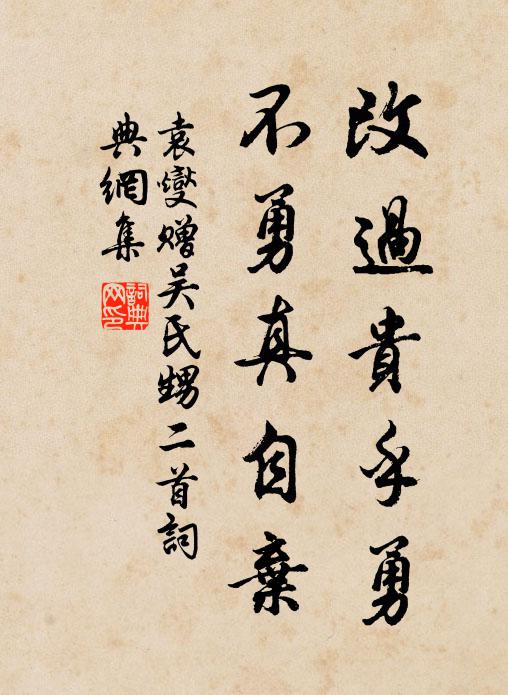 改過貴乎勇
不勇真自棄
袁燮贈吴氏甥二首詞
典網集
詞典
网印